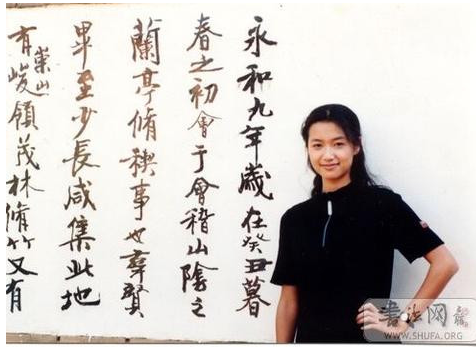 永和九年歲在癸丑暮
春之初會于會稽山陰之
蘭亭脩稧事也羣賢
畢至少長咸集此地
有崇山峻領茂林脩竹又有
書法网
WWW.SHUFA.ORG